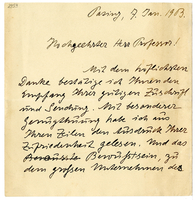 Pasing, 7. Jan. 1903
Hochgeehrter Herr Professor!
Mit dem höflichsten
Danke bestätige ich Ihnen den
Empfang Ihrer gütigen Zuschrift
und Sendung. Mit besonderer
Genugthuung habe ich aus
Ihren Zeilen den Ausdruck Ihrer
Zufriedenheit gelesen. Und das
Bewußtsein, zu
dem großen Unternehmen des